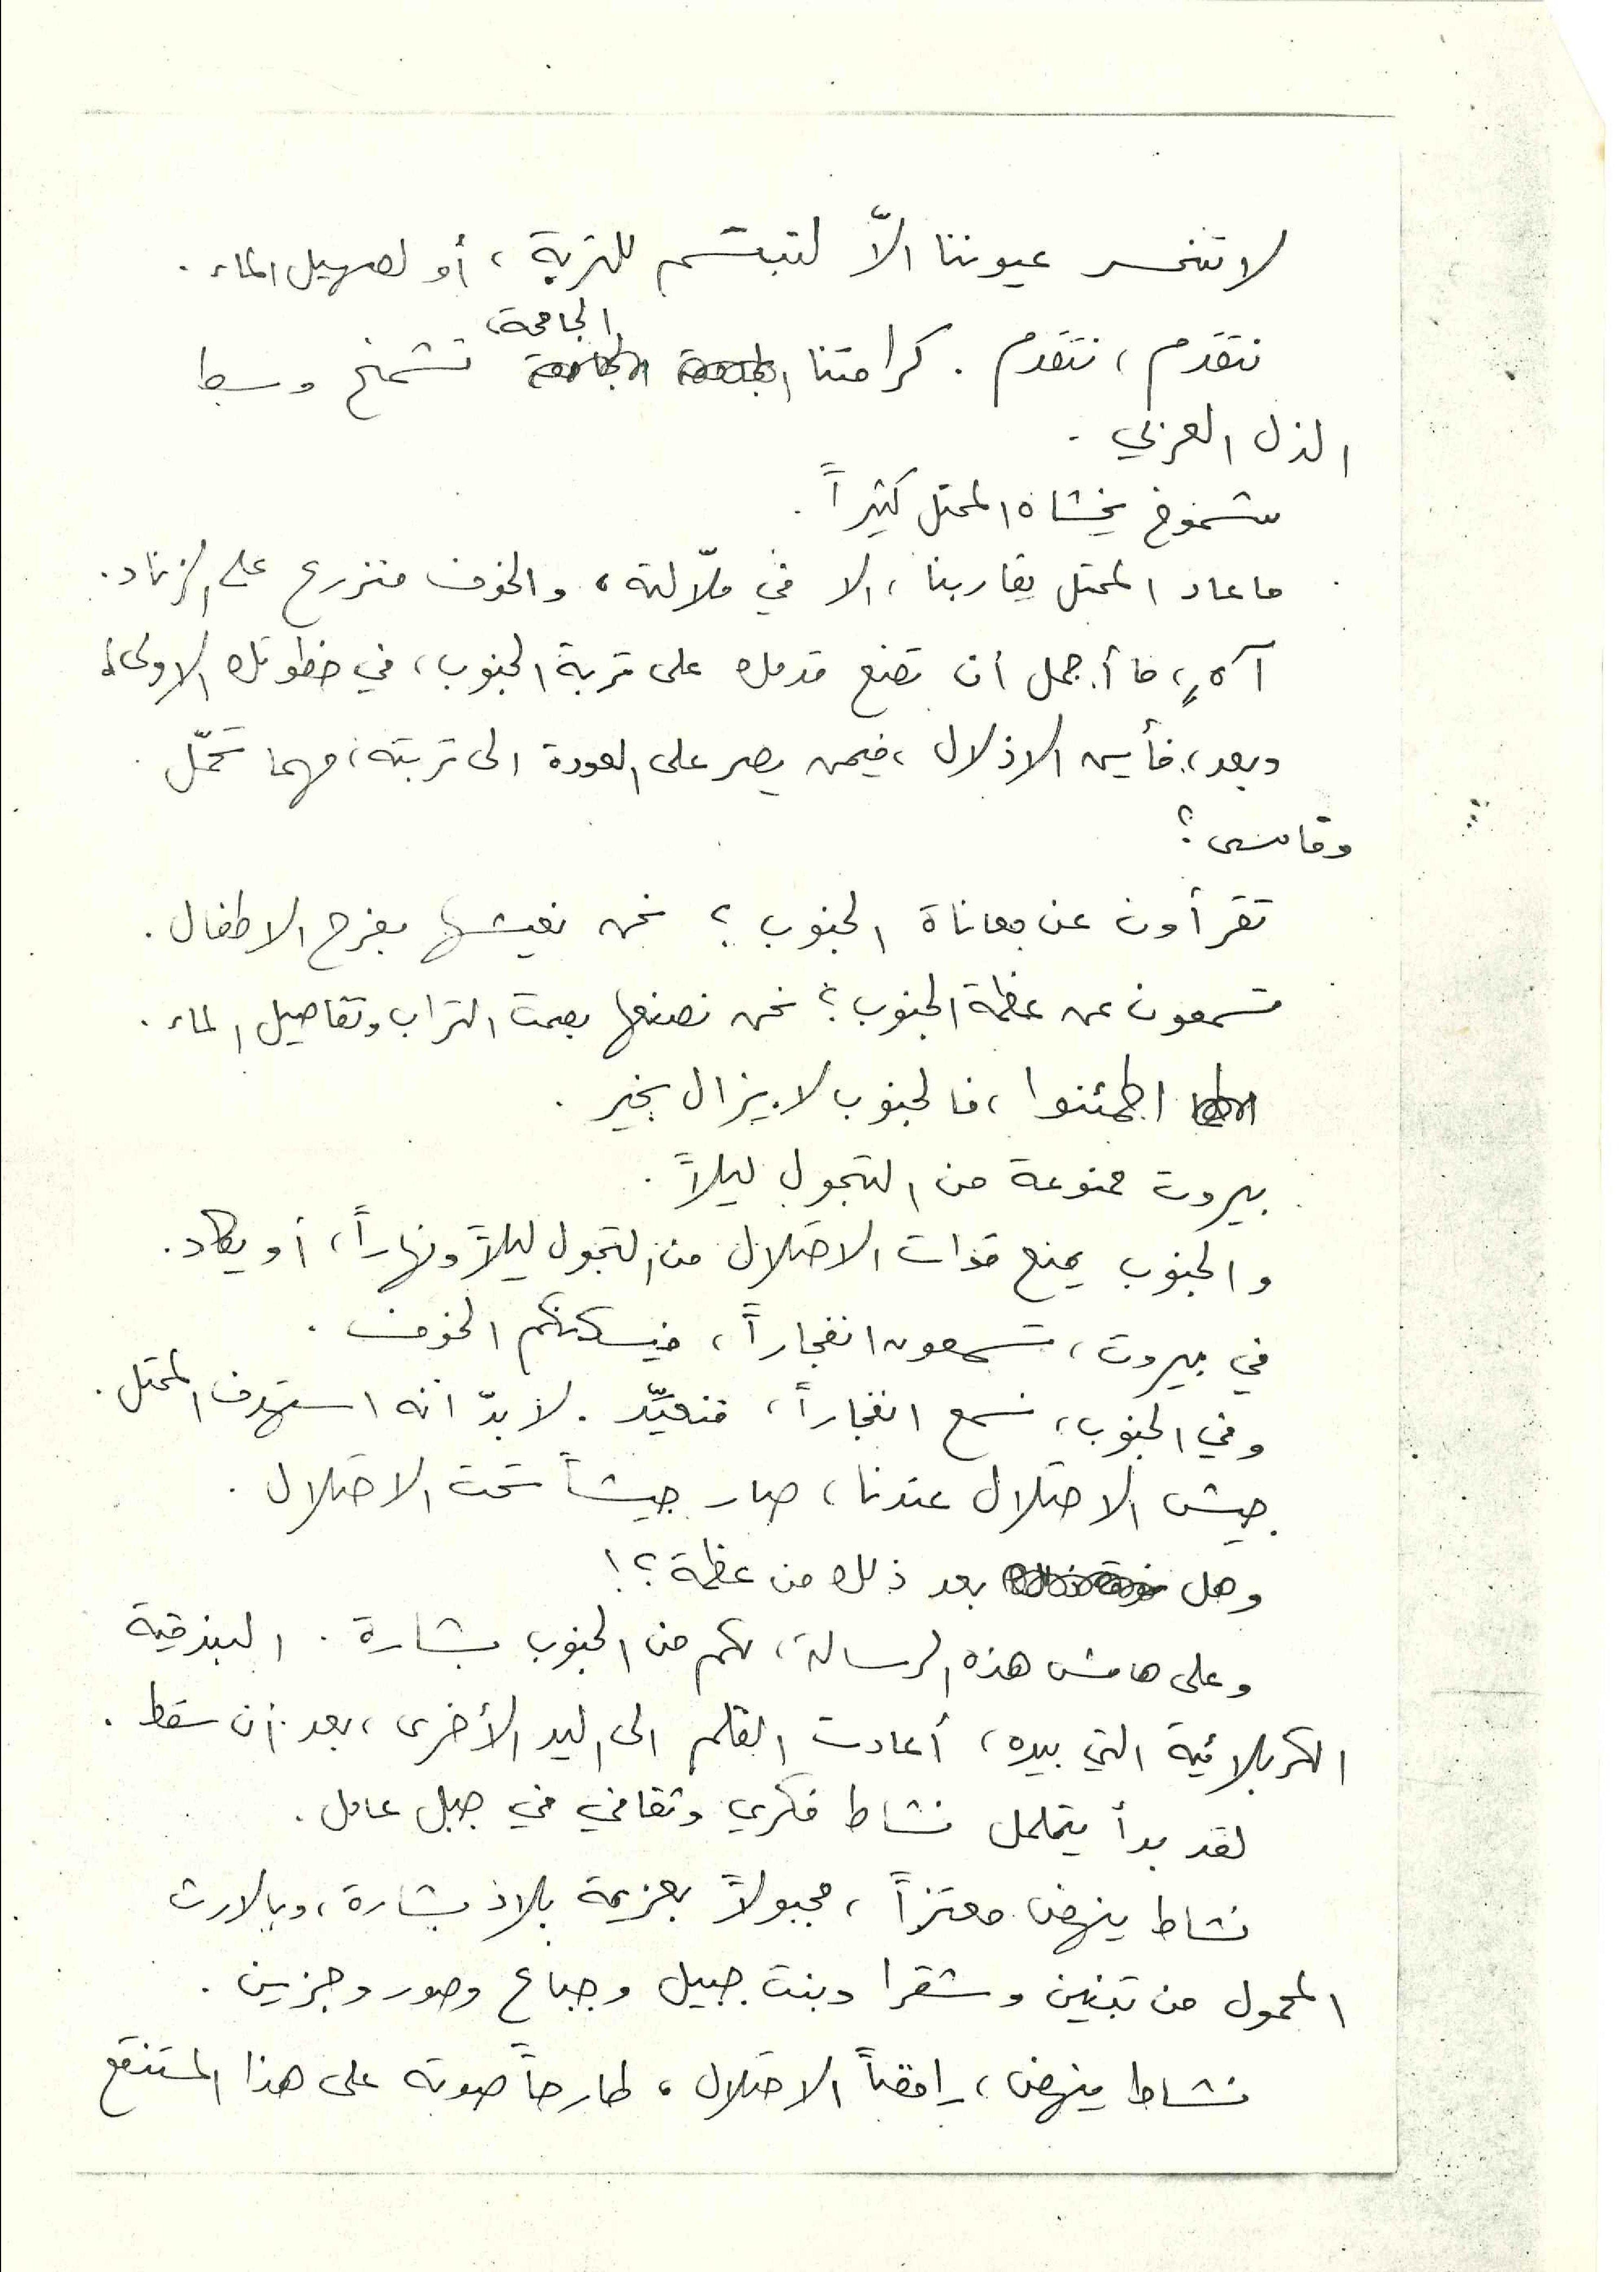 لا تنحسر عيوننا الاّ لتبتسم للتربة، أو لصهيل الماء.
نتقدم، نتقدم. كرامتنا الجامحة، تشمخ وسط
الذل العربي.
شموخ يخشاه المحتل كثيراً.
ما عاد المحتل يقاربنا، الا في ملاّلته، والخوف منزرع على الزناد.
آهٍ، ما أجمل أن تضع قدمك على تربة الجنوب، في خطوتك الاولى!
وبعد، فأين الاذلال، فيمن يصر على العودة الى تربته، مهما تحمّل
وقاسى؟
تقرأون عن معاناة الجنوب؟ نحن نعيشها بفرح الاطفال.
تسمعون عن عظمة الجنوب؟ نحن نصنعها بصمت التراب وتفاصيل الماء.
اطمئنوا، فالجنوب لا يزال بخير.
بيروت ممنوعة من التجول ليلاً.
والجنوب يمنع قوات الاحتلال من التجول ليلاً ونهاراً، أو يكاد.
في بيروت، تسمعون انفجاراً، فيسكنكم الخوف.
وفي الجنوب، نسمع انفجاراً، فنعيِّد. لا بدّ انه استهدف المحتل.
جيش الاحتلال عندنا، صار جيشاً تحت الاحتلال.
وهل بعد ذلك من عظمة؟!
وعلى هامش هذه الرسالة، لكم من الجنوب بشارة. البندقية
الكربلائية التي بيده، أعادت القلم الى اليد الأخرى، بعد أن سقط.
لقد بدأ يتململ نشاط فكري وثقافي في جبل عامل.
نشاط ينهض معتزاً، مجبولاً بعزيمة بلاد بشارة، وبالارث
المحمول من تبنين وشقرا وبنت جبيل وجباع وصور وجزين.
نشاط ينهض، رافضاً الاحتلال، طارحاً صوته على هذا المستنقع